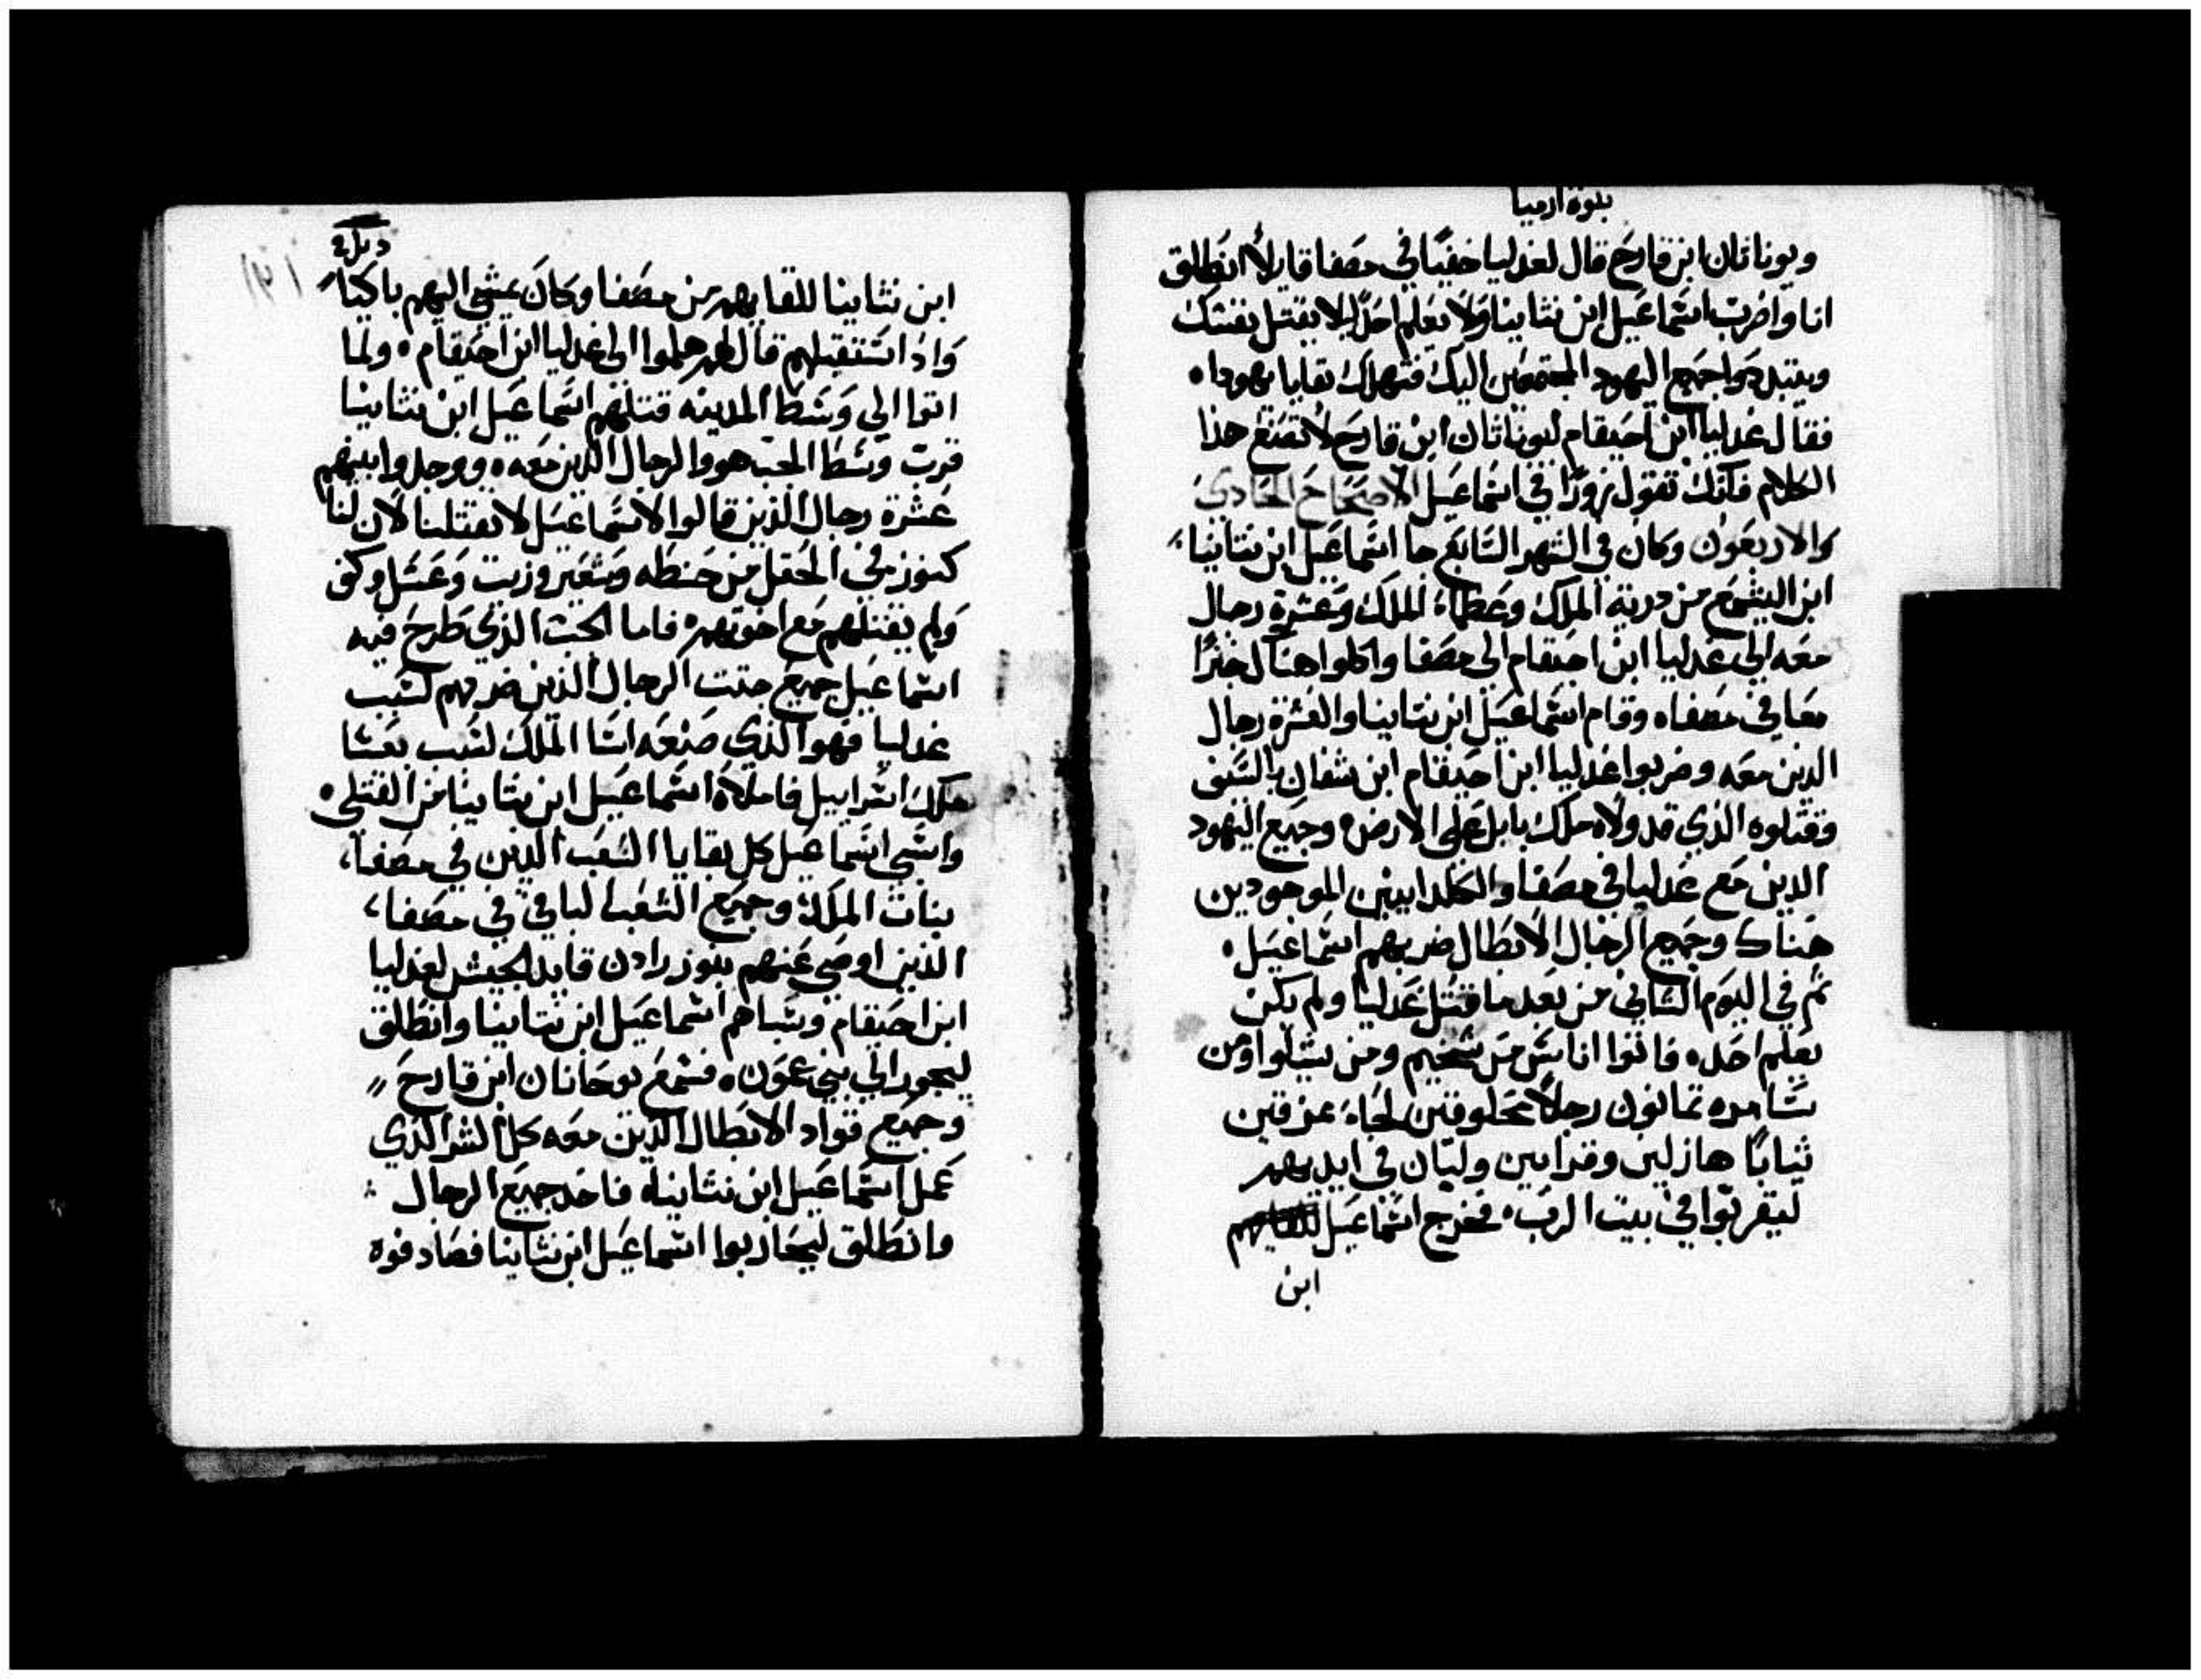 نبوة ارميا
ويوناثان ابن قارح قال لغدليا خفيًا في مصفا قايلاً انطلق
انا واضرب اسماعيل ابن نثانيا ولا يعلم احدٌ ليلا يقتل نفسك
ويتبددوا جميع اليهود المجتمعين اليك فتهلك بقايا يهودا،
فقال غدليا ابن احيقام ليوناثان ابن قارح لا تصنع هذا
الكلام فانك تقول زورًا في اسماعيل الاصحاح الحادي
والاربعون وكان في الشهر السابع جا اسماعيل ابن نثانيا،
ابن اليشمع من درية الملك وعظماء الملك وعشرة رجال
معه الي غدليا ابن احيقام الى مصفا واكلوا هناك خبزًا
معا في مصفا، وقام اسماعيل ابن نثانيا والعشرة رجال
الدين معه وضربوا غدليا ابن احيقام ابن شفان بالسيف
وقتلوه الذي قد ولاه ملك بابل على الارض، وجميع اليهود
الدين مع غدليا في مصفا والكلدانيين الموجودين
هناك وجميع الرجال الابطال ضربهم اسماعيل،
ثم في اليوم الثاني من بعد ما قتل غدليا ولم يكن
يعلم احد، فاتوا اناس من شخيم ومن شيلوا ومن
سامره ثمانون رجلاً محلوقين لحاء ممزقين
ثيابًا هازلين وقرابين ولبان في ايديهم
ليقربوا في بيت الرب، فخرج اسماعيل للقايهم
ابن
ابن نثانيا للقايهم من مصفا وكان يمشي اليهم باكيًا
واذ استقبلهم قال لهم هلموا الى غدليا ابن احيقام، ولما
اتوا الي وسط المدينه قتلهم اسماعيل ابن نثانيا
قرب وسط الجب هو والرجال الدين معه، ووجدوا بينهم
عشرة رجال الذين قالوا لاسماعيل لا تقتلنا لان لنا
كنوز في الحقل من حنطه وشعير وزيت وعسل وكف
ولم يقتلهم مع اخوتهم، فاما الجب الذي طرح فيه
اسماعيل جميع جتت الرجال الذين ضربهم لسبب
غدليا فهو الذي صنعه اسا الملك لسبب بعشا
ملك اسراييل فاملاه اسماعيل ابن نثانيا من القتلى،
واسبى اسماعيل كل بقايا الشعب الدين في مصفا،
بنات الملك وجميع الشعب الباقي في مصفا،
الذين اوصي عنهم بنوزرادن قايد الجيش لغدليا
ابن احيقام وسباهم اسماعيل ابن نثانيا وانطلق
ليجوز الي بني عمون، فسمع يوحانان ابن قارح
وجميع قواد الابطال الدين معه كل الشر الذي
عمل اسماعيل ابن نثانيا، فاخد جميع الرجال
وانطلق ليحاربوا اسماعيل ابن نثانيا فصادفوه